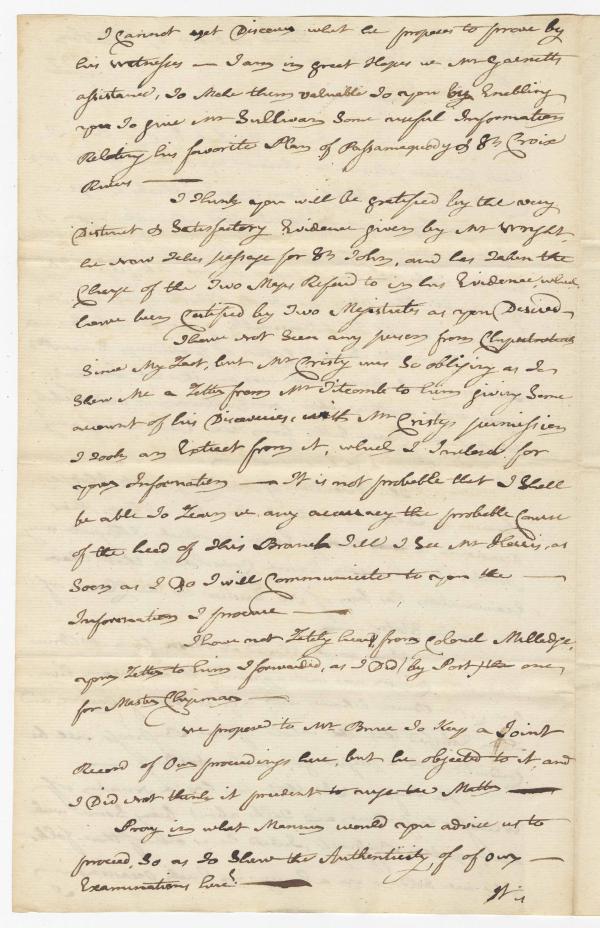 I Cannot yet Discover what he proposes to prove by
his Witnesses — I am in great Hopes w Mr Garnetts
assistance, to Make them valuable to you by Enabling
you to give Mr Sullivan Some useful Information
Relating his favorite Plan of Passamaquody & St Croix
Rivers —
I think you will be gratified by the very
Distinct & Satisfactory Evidence given by Mr Wright,
he now takes passage for St John, and has taken the
Charge of the Two Maps Referd to in his Evidence, which
have been Certified by Two Majestrates as you Desired —
I have not Seen any person from
Since My Last, but Mr Cristy was So obliging as to
Shew Me a Letter from Mr Titcomb to him giving Some
account of his Discoveries, with Mr Cristys permission
I took an Extract from it, which I Inclose for
your Information — It is not probable that I Shall
be able to Learn w any accuracy the probable Course
of the head of this Branch till I See Mr Harris, as
Soon as I Do I will Communicate to you the —
Information I procure —
I have not Lately heard from Colonel Milledge,
your Letter to him I forwarded, as I Did (by Post) the one
for Master Chipman —
we proposed to Mr Bruce to Keep a Joint
Record of Our proceedings here, but he objected to it, and
I Did not think it prudent to urge the Matter —
Pray in what Manner would you advise us to
proceed, So as to Shew the Authenticity of of Our —
Examinations here? —